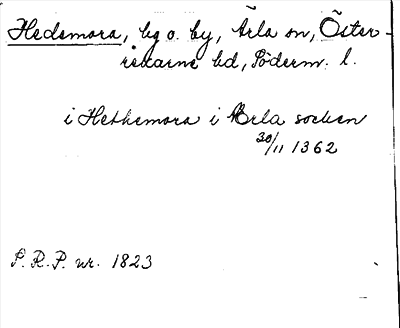 Hedemora, hg o. by, Ärla sn, Öster-
rekarne hd, Söderm. l.
i Hethemora i Ærla socken
30/11 1362
S.R.P. nr. 1823